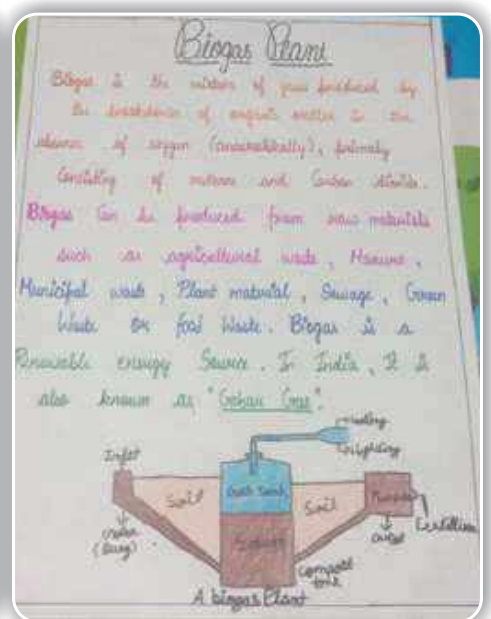 Biogas Plant
Biogas is the mixture of gases produced by
the breakdown of organic matter in the
absence of oxygen (anaerobically), primarily
Consisting of methane and Carbon dioxide.
Biogas Can be produced from raw materials
such as agricultural waste, Manure,
Municipal waste, Plant material, Sewage, Green
Waste or food Waste. Biogas is a
Renewable energy Source. In India, It is
also known as "Gobar Gas".
Cooking
Lighting
Inlet
Soil
Gas tank
Soil
(Dung)
outlet
Fertilizer
compost
tank
A biogas Plant